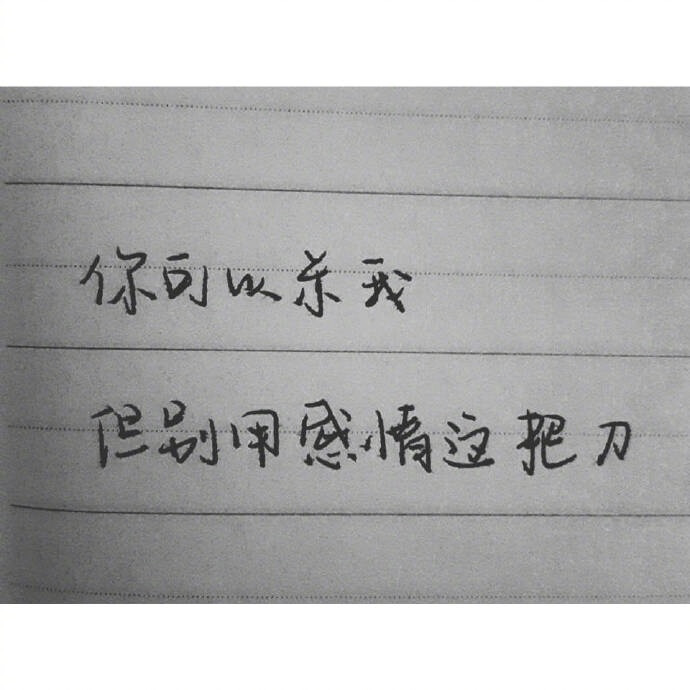 你可以杀我
但别用感情这把刀